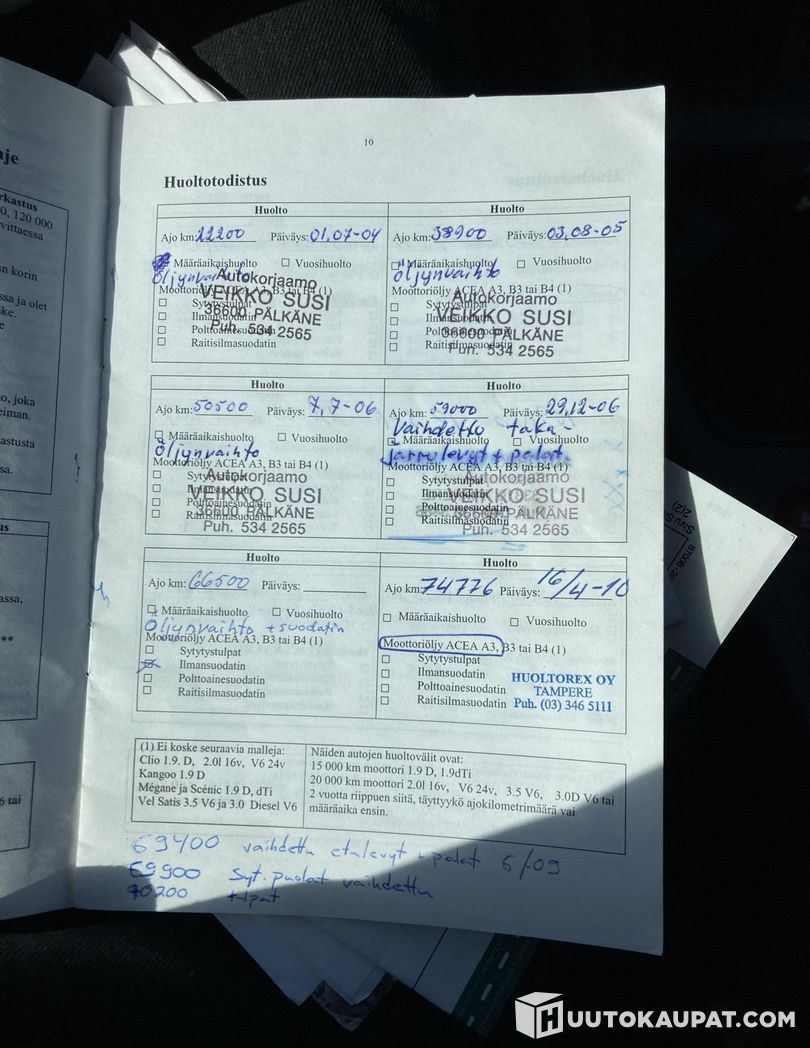 10
Huoltotodistus
Huolto
Ajo km: 22200 Päiväys: 01,07-04
Määräaikaishuolto Vuosihuolto
Öljynvaihto
Moottoriöljy ACEA A3, B3 tai B4 (1)
Sytytystulpat
Ilmansuodatin
Polttoainesuodatin
Raitisilmasuodatin
Autokorjaamo
VEIKKO SUSI
36600 PÄLKÄNE
Puh. 534 2565
Huolto
Ajo km: 38900 Päiväys: 03,08-05
Määräaikaishuolto Vuosihuolto
öljynvaihto
Moottoriöljy ACEA A3, B3 tai B4 (1)
Sytytystulpat
Ilmansuodatin
Polttoainesuodatin
Raitisilmasuodatin
Autokorjaamo
VEIKKO SUSI
36600 PÄLKÄNE
Puh. 534 2565
Huolto
Ajo km: 50500 Päiväys: 7,7-06
Määräaikaishuolto Vuosihuolto
öljynvaihto
Moottoriöljy ACEA A3, B3 tai B4 (1)
Sytytystulpat
Ilmansuodatin
Polttoainesuodatin
Raitisilmasuodatin
Autokorjaamo
VEIKKO SUSI
36600 PÄLKÄNE
Puh. 534 2565
Huolto
Ajo km: 59000 Päiväys: 29,12-06
Vaihdettu taka-
Määräaikaishuolto Vuosihuolto
jarrulevyt + palat.
Moottoriöljy ACEA A3, B3 tai B4 (1)
Sytytystulpat
Ilmansuodatin
Polttoainesuodatin
Raitisilmasuodatin
Autokorjaamo
VEIKKO SUSI
36600 PÄLKÄNE
Puh. 534 2565
Huolto
Ajo km: 66500 Päiväys:
Määräaikaishuolto Vuosihuolto
Öljynvaihto + suodatin
Moottoriöljy ACEA A3, B3 tai B4 (1)
Sytytystulpat
Ilmansuodatin
Polttoainesuodatin
Raitisilmasuodatin
Huolto
Ajo km: 74776 Päiväys: 16/4-10
Määräaikaishuolto Vuosihuolto
Moottoriöljy ACEA A3, B3 tai B4 (1)
Sytytystulpat
Ilmansuodatin
Polttoainesuodatin
Raitisilmasuodatin
HUOLTOREX OY
TAMPERE
Puh. (03) 346 5111
(1) Ei koske seuraavia malleja:
Clio 1.9. D, 2.0l 16v, V6 24v
Kangoo 1.9 D
Mégane ja Scénic 1.9 D, dTi
Vel Satis 3.5 V6 ja 3.0 Diesel V6
Näiden autojen huoltovälit ovat:
15 000 km moottori 1.9 D, 1.9dTi
20 000 km moottori 2.0l 16v, V6 24v, 3.5 V6, 3.0D V6 tai
2 vuotta riippuen siitä, täyttyykö ajokilometrimäärä vai
määräaika ensin.
69400 vaihdettu etulevyt + palat 6/-09
69900 Syt. puolat vaihdettu
70200 tulpat
HUUTOKAUPAT.COM